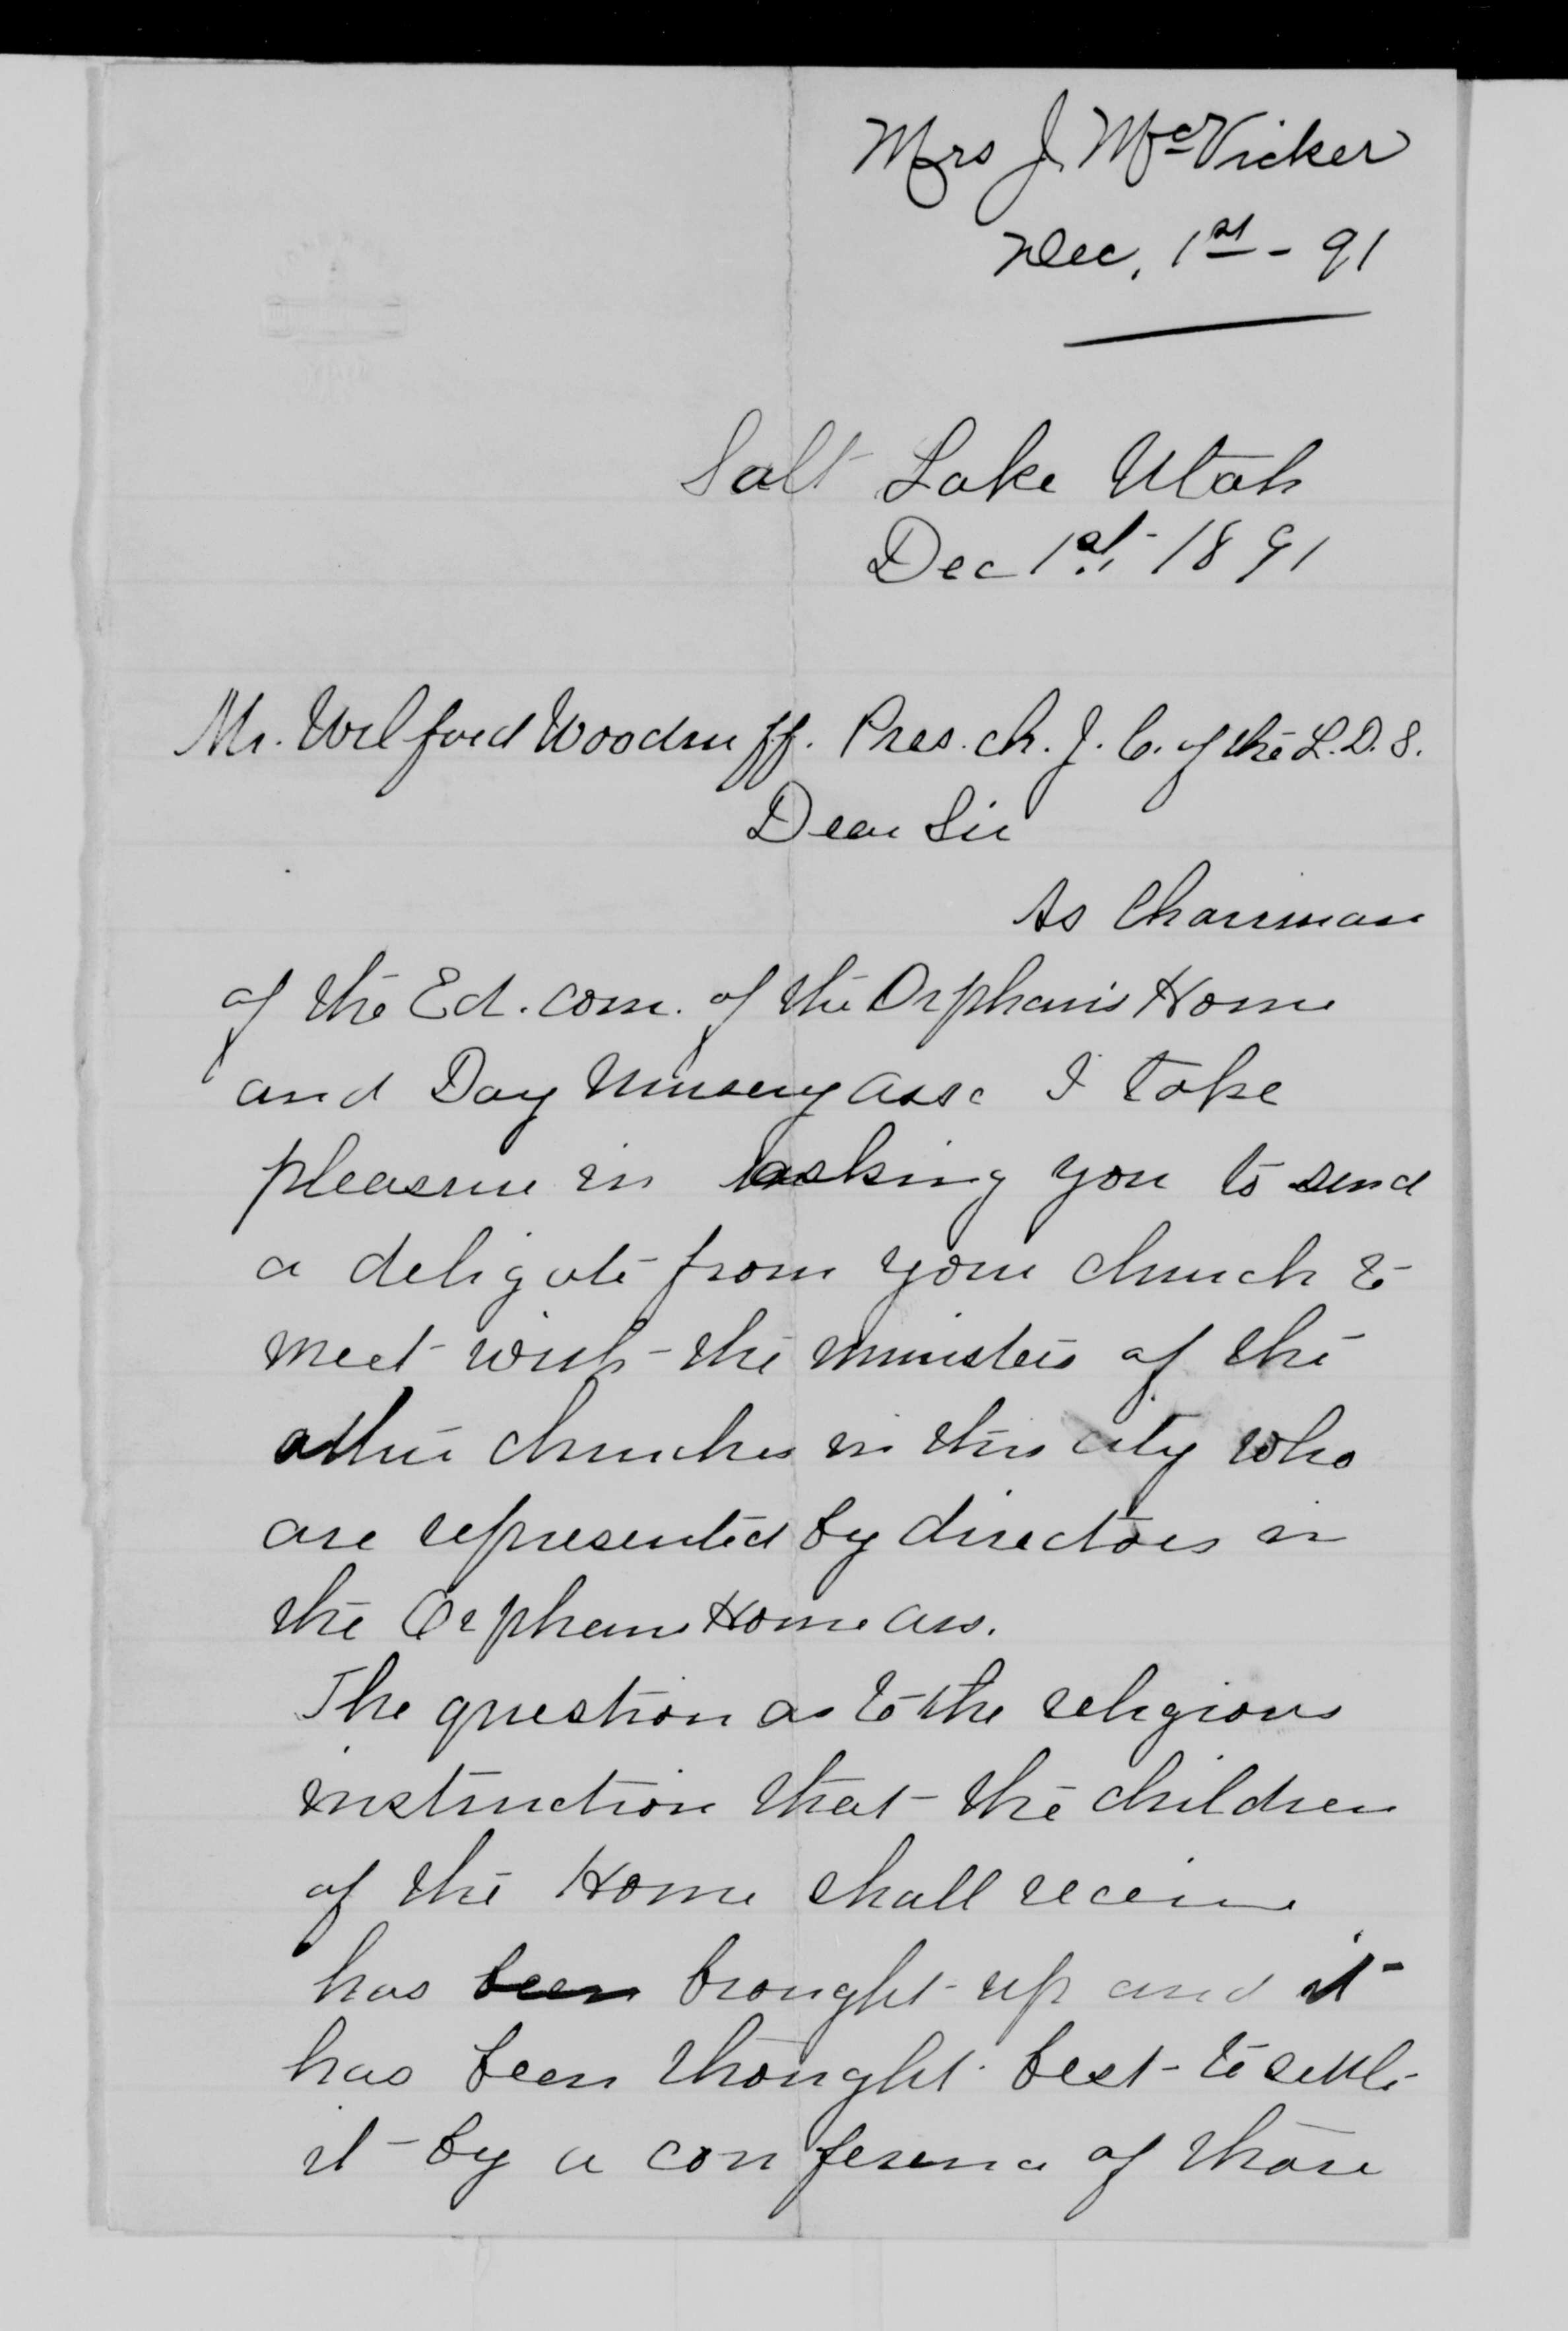 Mrs J. McVicker
Dec. 1st - 91
Salt Lake Utah
Dec 1st 1891
Mr. Wilford Woodruff. Pres. ch. J. C. of the L. D. S.
Dear Sir
As Chairman
of the Ed. com. of the Orphan's Home
and Day Nursery Assc I take
pleasure in asking you to send
a deligate from your church to
meet with the ministers of the
other churches in this city who
are represented by directors in
the Orphans Home ass.
The question as to the religious
instruction that the children
of the Home shall receive
has been brought up and it
has been thought best to settle
it by a conference of those